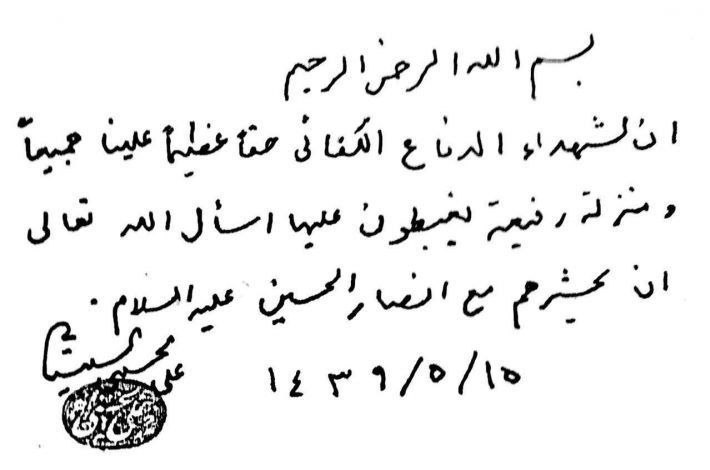 بسم الله الرحمن الرحيم
ان لشهداء الدفاع الكفائي حقاً عظيماً علينا جميعاً
و منزلة رفيعة يغبطون عليها اسأل الله تعالى
ان يحشرهم مع انصار الحسين عليه السلام .
علي الحسيني السيستاني
١٤٣٩/٥/١٥